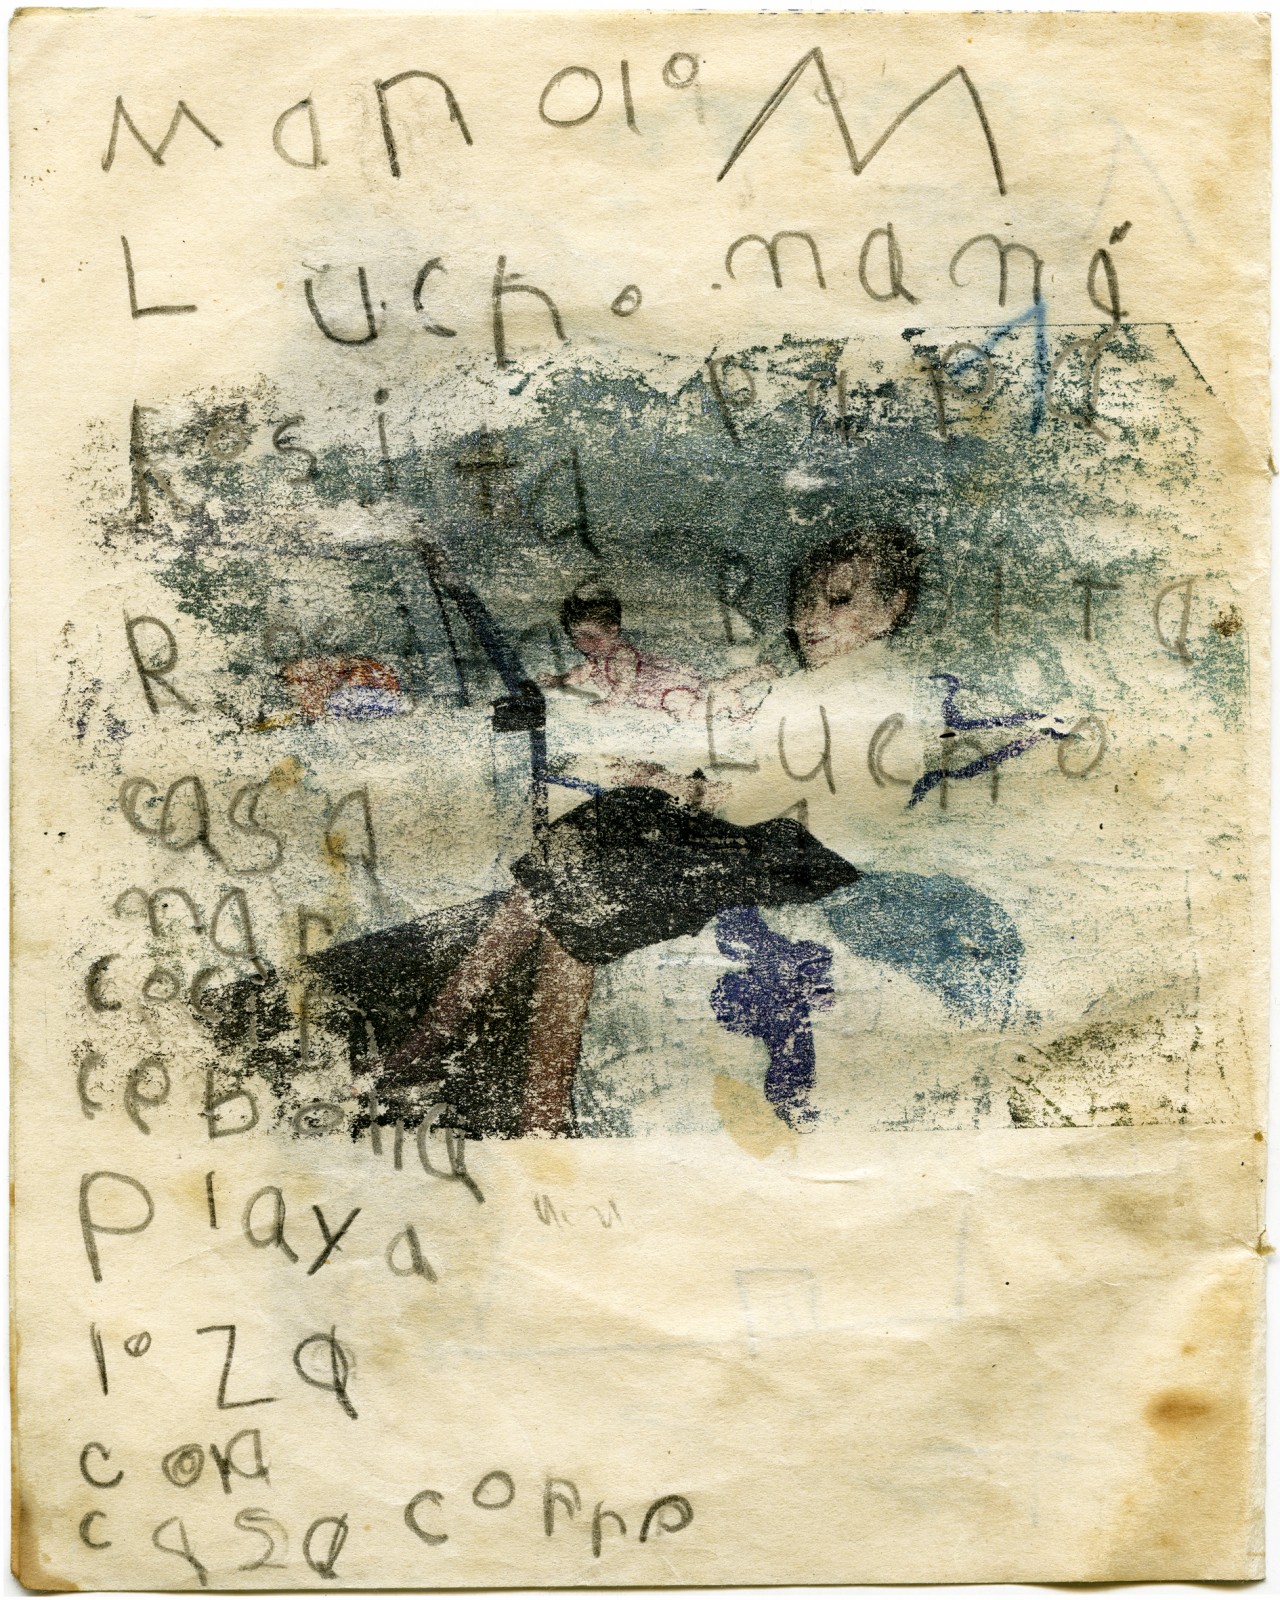 Manolo M
Lucho mamá
Rosita papá
R Rosita
Lucho
casa
mar
cocina
cebolla
Playa
loza
casa